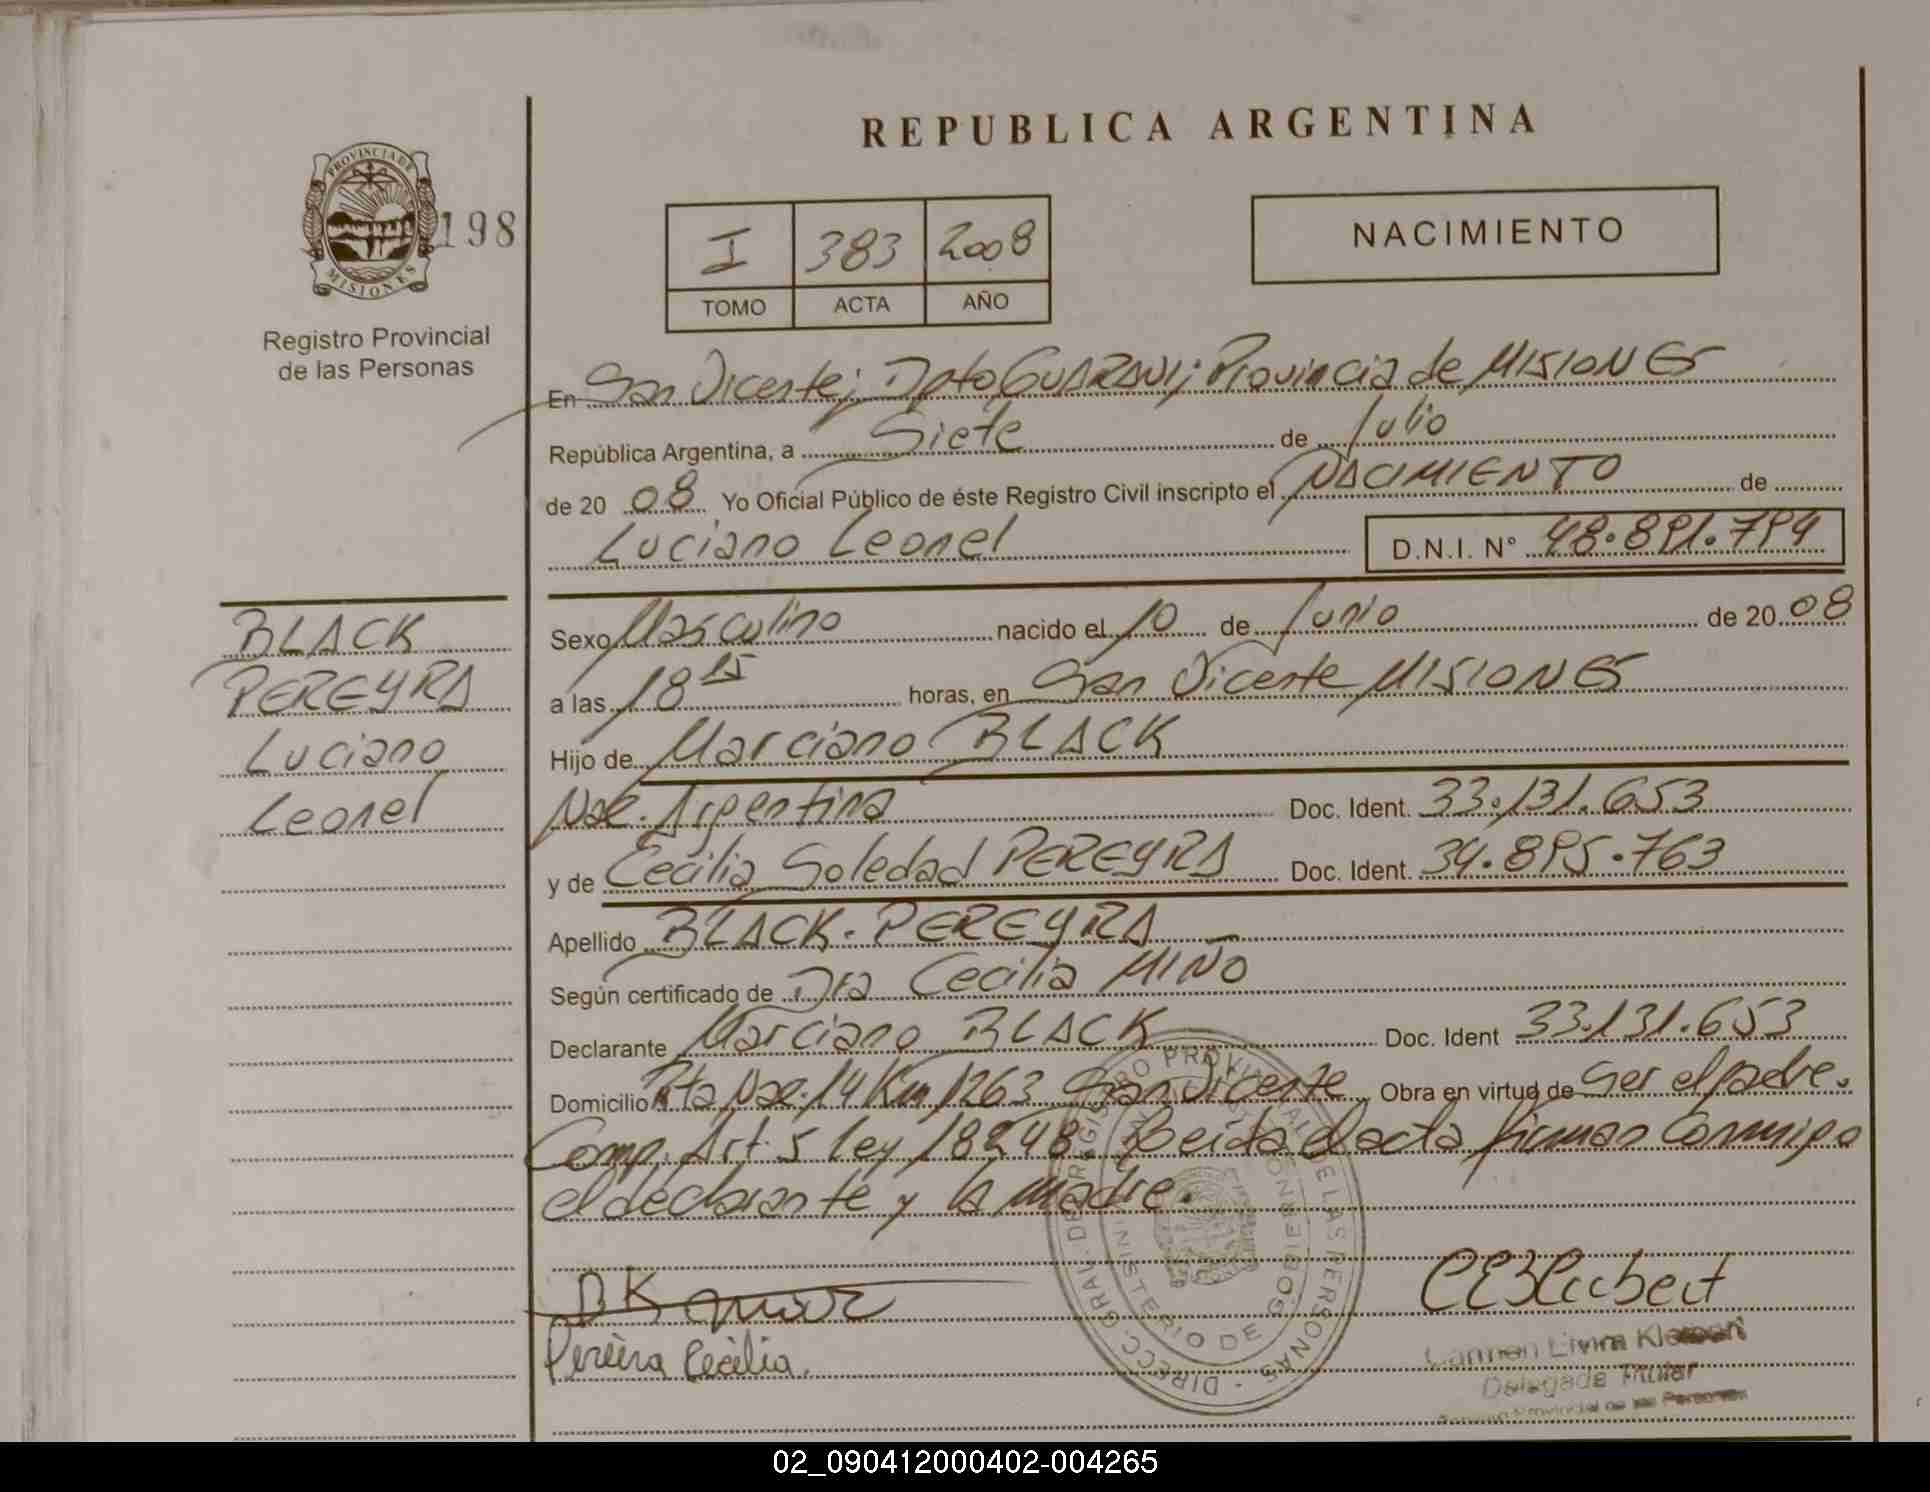 REPUBLICA ARGENTINA
PROVINCIA DE
MISIONES
198
Registro Provincial
de las Personas
I 383 2008
TOMO ACTA AÑO
NACIMIENTO
En San Vicente; Dpto GUARANI; Provincia de MISIONES
República Argentina, a Siete de Julio
de 20 08 Yo Oficial Público de éste Registro Civil inscripto el NACIMIENTO de
Luciano Leonel D.N.I. N° 48.891.794
BLACK
PEREYRA
Luciano
Leonel
Sexo Masculino nacido el 10 de Junio de 20 08
a las 18 15 horas, en San Vicente MISIONES
Hijo de Marciano BLACK
Nac. Argentina Doc. Ident. 33.131.653
y de Cecilia Soledad PEREYRA Doc. Ident. 34.895.763
Apellido BLACK. PEREYRA
Según certificado de Dra Cecilia MIÑO
Declarante Marciano BLACK Doc. Ident 33.131.653
Domicilio Rta Nac. 14 Km 1263 San Vicente Obra en virtud de Ser el padre.
Comp. Art. 5 ley 18248. Leida el acta firman Conmigo
el declarante y la madre.
DIRECC. GRAL. DE REGISTRO PROVINCIAL DE LAS PERSONAS
MINISTERIO DE GOBIERNO
Pereira Cecilia.
Carmen
Delegada Titular
Registro Provincial de las Personas
02_090412000402-004265